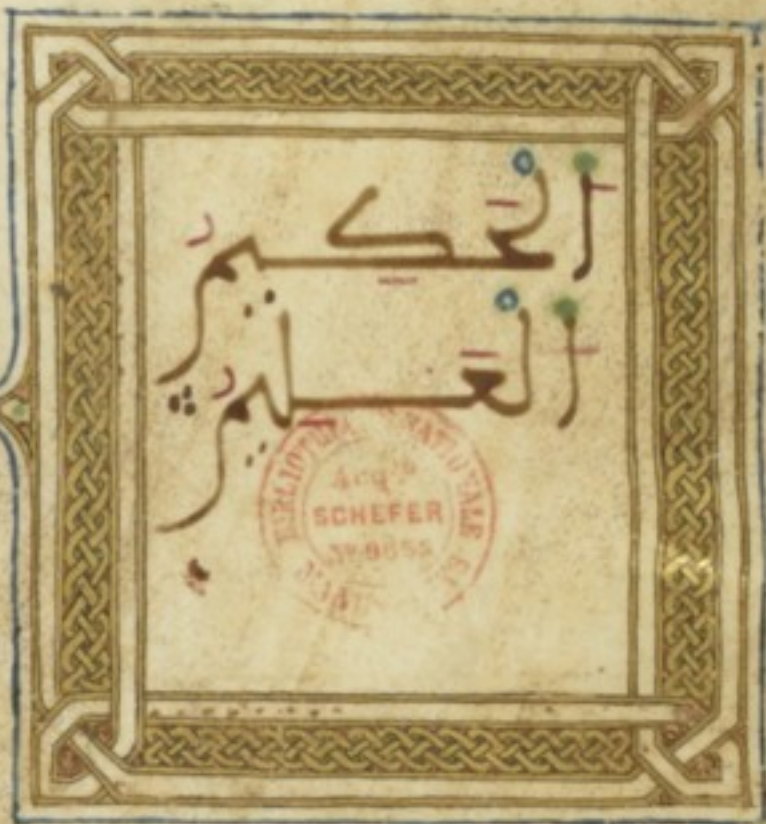 اَلْحَكِيمُ
اَلْعَلِيمُ
BIBLIOTHÈQUE NATIONALE
Acq.
SCHEFER